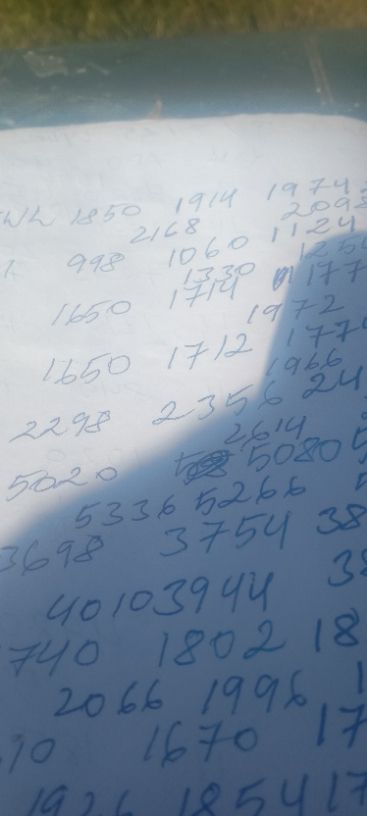 1850 1914 1974
2168 2098
998 1060 1124
1330 125
1650 1714 177
1972
1650 1712 177
1966
2298 2356 24
2614
5020 5080 5
5336 5266 5
3698 3754 38
4010 3944 38
1740 1802 18
2066 1996 1
10 1670 17
1926 1854 17